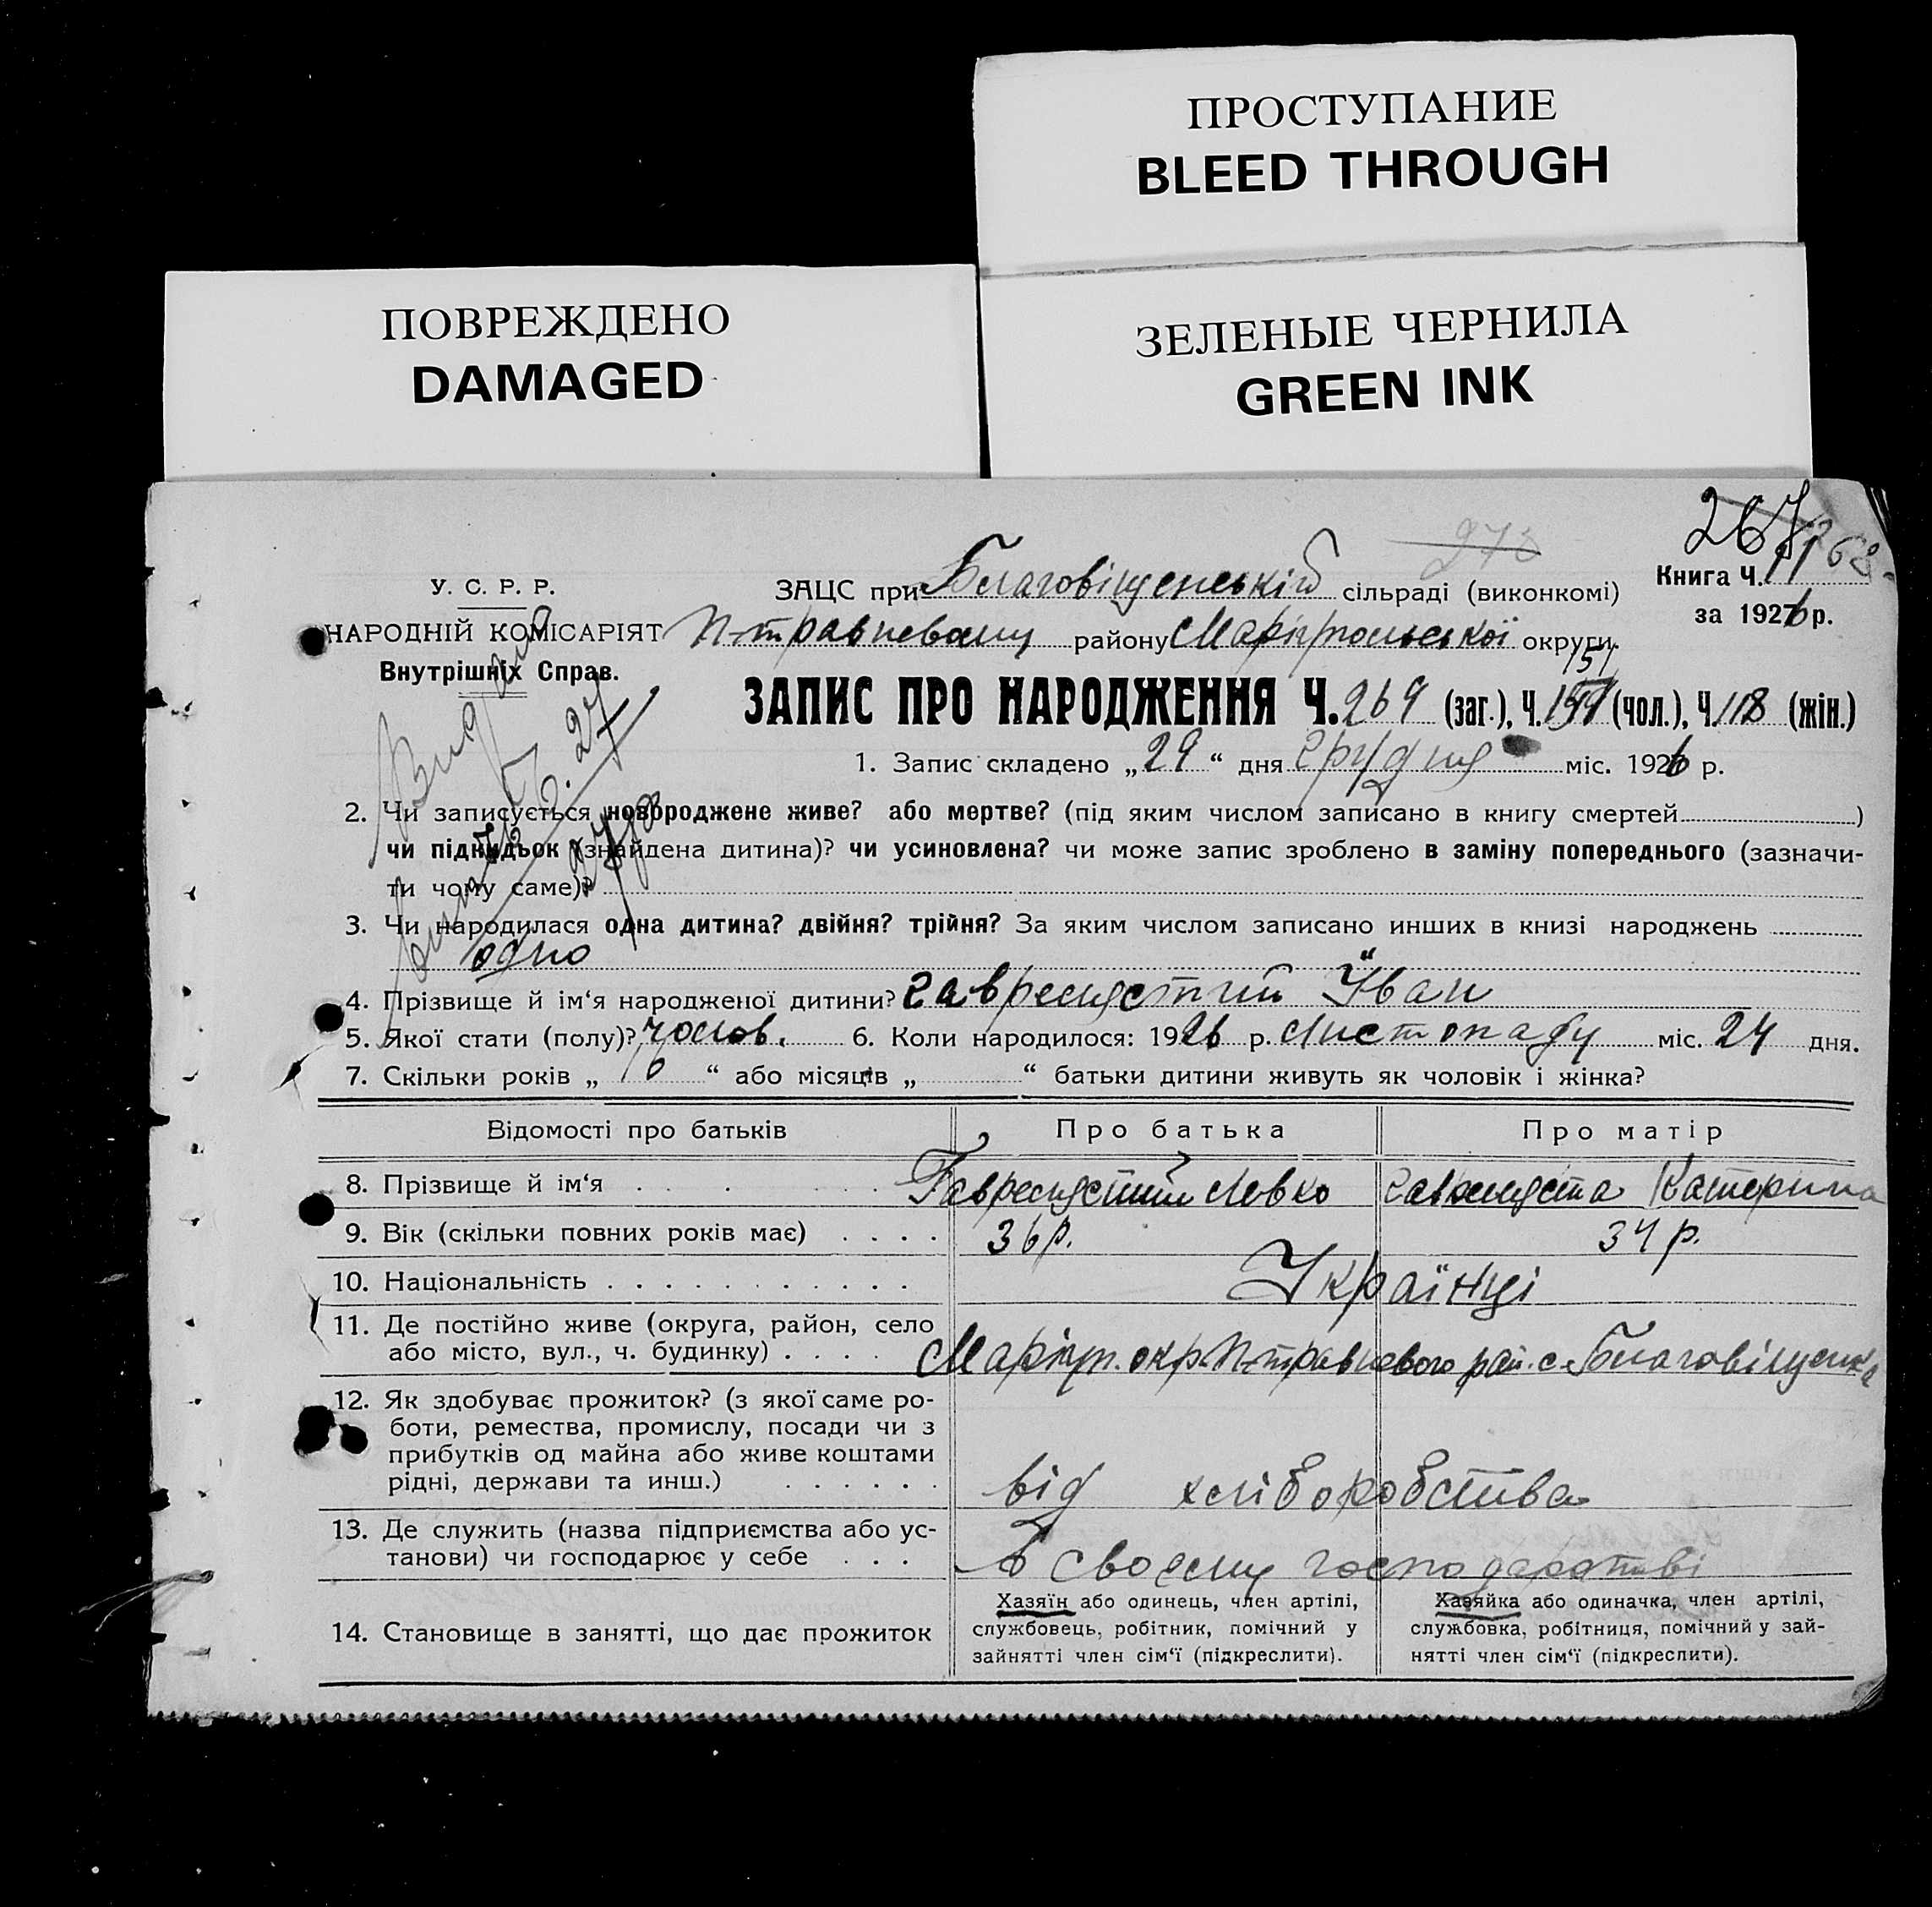 ПРОСТУПАНИЕ
BLEED THROUGH
ПОВРЕЖДЕНО
DAMAGED
ЗЕЛЕНЫЕ ЧЕРНИЛА
GREEN INK
267
278
268
У. С. Р. Р.
НАРОДНІЙ КОМІСАРІЯТ
Внутрішніх Справ.
ЗАЦС при Благовіщенській сільраді (виконкомі)
Книга Ч. 11
за 1926 р.
П-травневому району Маріупольської округи.
151
ЗАПИС ПРО НАРОДЖЕННЯ Ч. 269 (заг.), Ч. (чол.), Ч. 118 (жін.)
1. Запис складено „ 29 “ дня грудня міс. 1926 р.
2. Чи записується новороджене живе? або мертве? (під яким числом записано в книгу смертей )
чи підкидьок (знайдена дитина)? чи усиновлена? чи може запис зроблено в заміну попереднього (зазначи-
ти чому саме)?
3. Чи народилася одна дитина? двійня? трійня? За яким числом записано инших в книзі народжень
одно
4. Прізвище й ім‘я народженої дитини? Іван
5. Якої стати (полу)? чолов. 6. Коли народилося: 1926 р. Листопаду міс. 24 дня.
7. Скільки років „ “ або місяців „ “ батьки дитини живуть як чоловік і жінка?
Відомості про батьків Про батька Про матір
8. Прізвище й ім‘я Левко Катерина
9. Вік (скільки повних років має) 36 р. 34 р.
10. Національність Українці
11. Де постійно живе (округа, район, село
або місто, вул., ч. будинку) Маріуп. окр. П-травневого рай. с. Благовіщенка
12. Як здобуває прожиток? (з якої саме ро-
боти, ремества, промислу, посади чи з
прибутків од майна або живе коштами
рідні, держави та инш.) від хліборобства
13. Де служить (назва підприємства або ус-
танови) чи господарює у себе В своему господарстві
14. Становище в занятті, що дає прожиток
Хазяїн або одинець, член артілі,
службовець, робітник, помічний у
зайнятті член сім‘ї (підкреслити).
Хазяйка або одиначка, член артілі,
службовка, робітниця, помічний у зай-
нятті член сім‘ї (підкреслити).